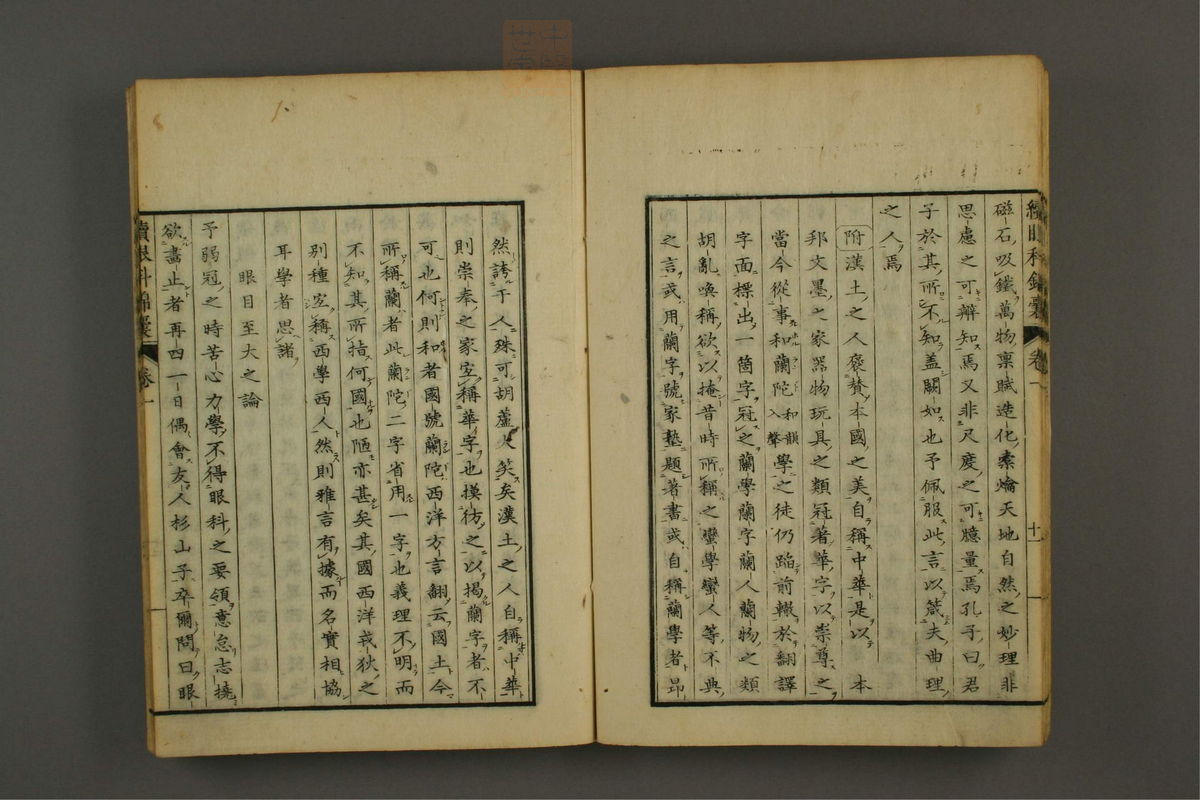 磁石吸鐵萬物稟賦造化橐爚天地自然之妙理非
思慮之可辨知焉又非尺度之可臆量焉孔子曰君
子於其所不知蓋闕如也予佩服此言以箴夫曲理
之人焉
附漢土之人褒賛本國之美自稱中華是以本
邦文墨之家器物玩具之類冠著華字以崇尊之
當今從事和蘭陀和韻入聲學之徒仍蹈前轍於翻譯
字面標出一箇字冠之蘭學蘭字蘭人蘭物之類
胡亂喚稱欲以掩昔時所稱之蠻學蠻人等不典
之言或用蘭字號家塾題著書或自稱蘭學者昂
然誇于人殊可胡盧大笑矣漢土之人自稱中華
則崇奉之家宜稱華字也摸彷之以揭蘭字者不
可也何則和者國號蘭陀西洋方言翻云國土今
所稱蘭者此蘭陀二字省用一字也義理不明而
不知其所指何國也陋亦甚矣其國西洋戎狄之
別種宜稱西學西人然則雅言有據而名實相協
耳學者思諸
眼目至大之論
予弱冠之時苦心力學不得眼科之要領意怠志撓
欲畫止者再四一日偶會友人杉山子卒爾問曰眼
續眼科錦囊 卷一 十一
續眼科錦囊 卷一